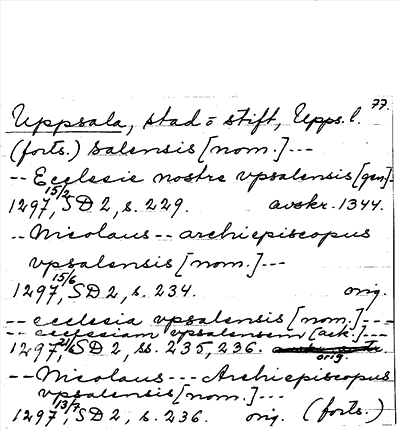 77.
Uppsala, stad o stift, Upps.l.
(forts.) salensis [nom.] ---
-- Ecclesie nostre vpsalensis [gen]-
1297 15/2, SD 2, s. 229. avskr. 1344.
-- Nicolaus -- archiepiscopus
vpsalensis [nom.] ---
1297 15/6, SD 2, s. 234. orig.
-- ecclesia vpsalensis [nom.] ---
-- ecclesiam vpsalensem [ack.] ---
1297, 21/6 SD 2, ss. 235, 236. orig.
-- Nicolaus --- Archiepiscopus
vpsalensis [nom.] ---
1297 13/7, SD 2, s. 236. orig. (forts.)